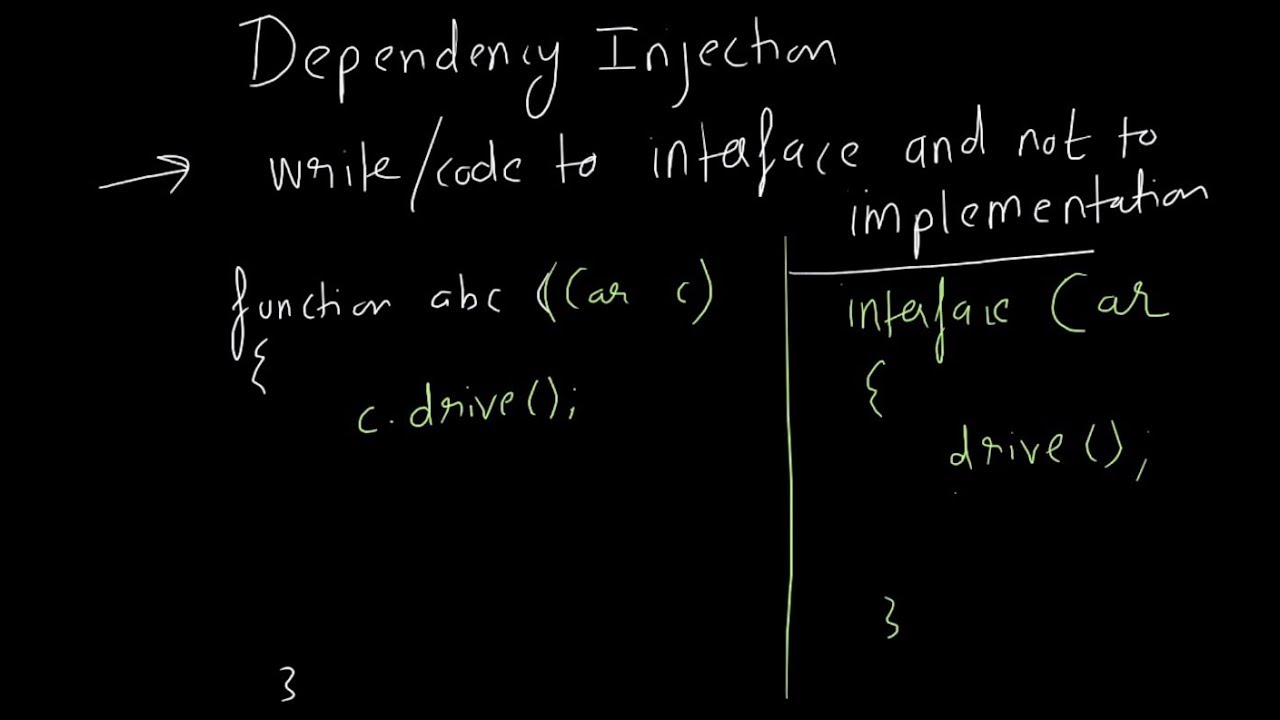 Dependency Injection
→ write/code to interface and not to
implementation
function abc (Car c)
{
c.drive();
}
interface Car
{
drive();
}